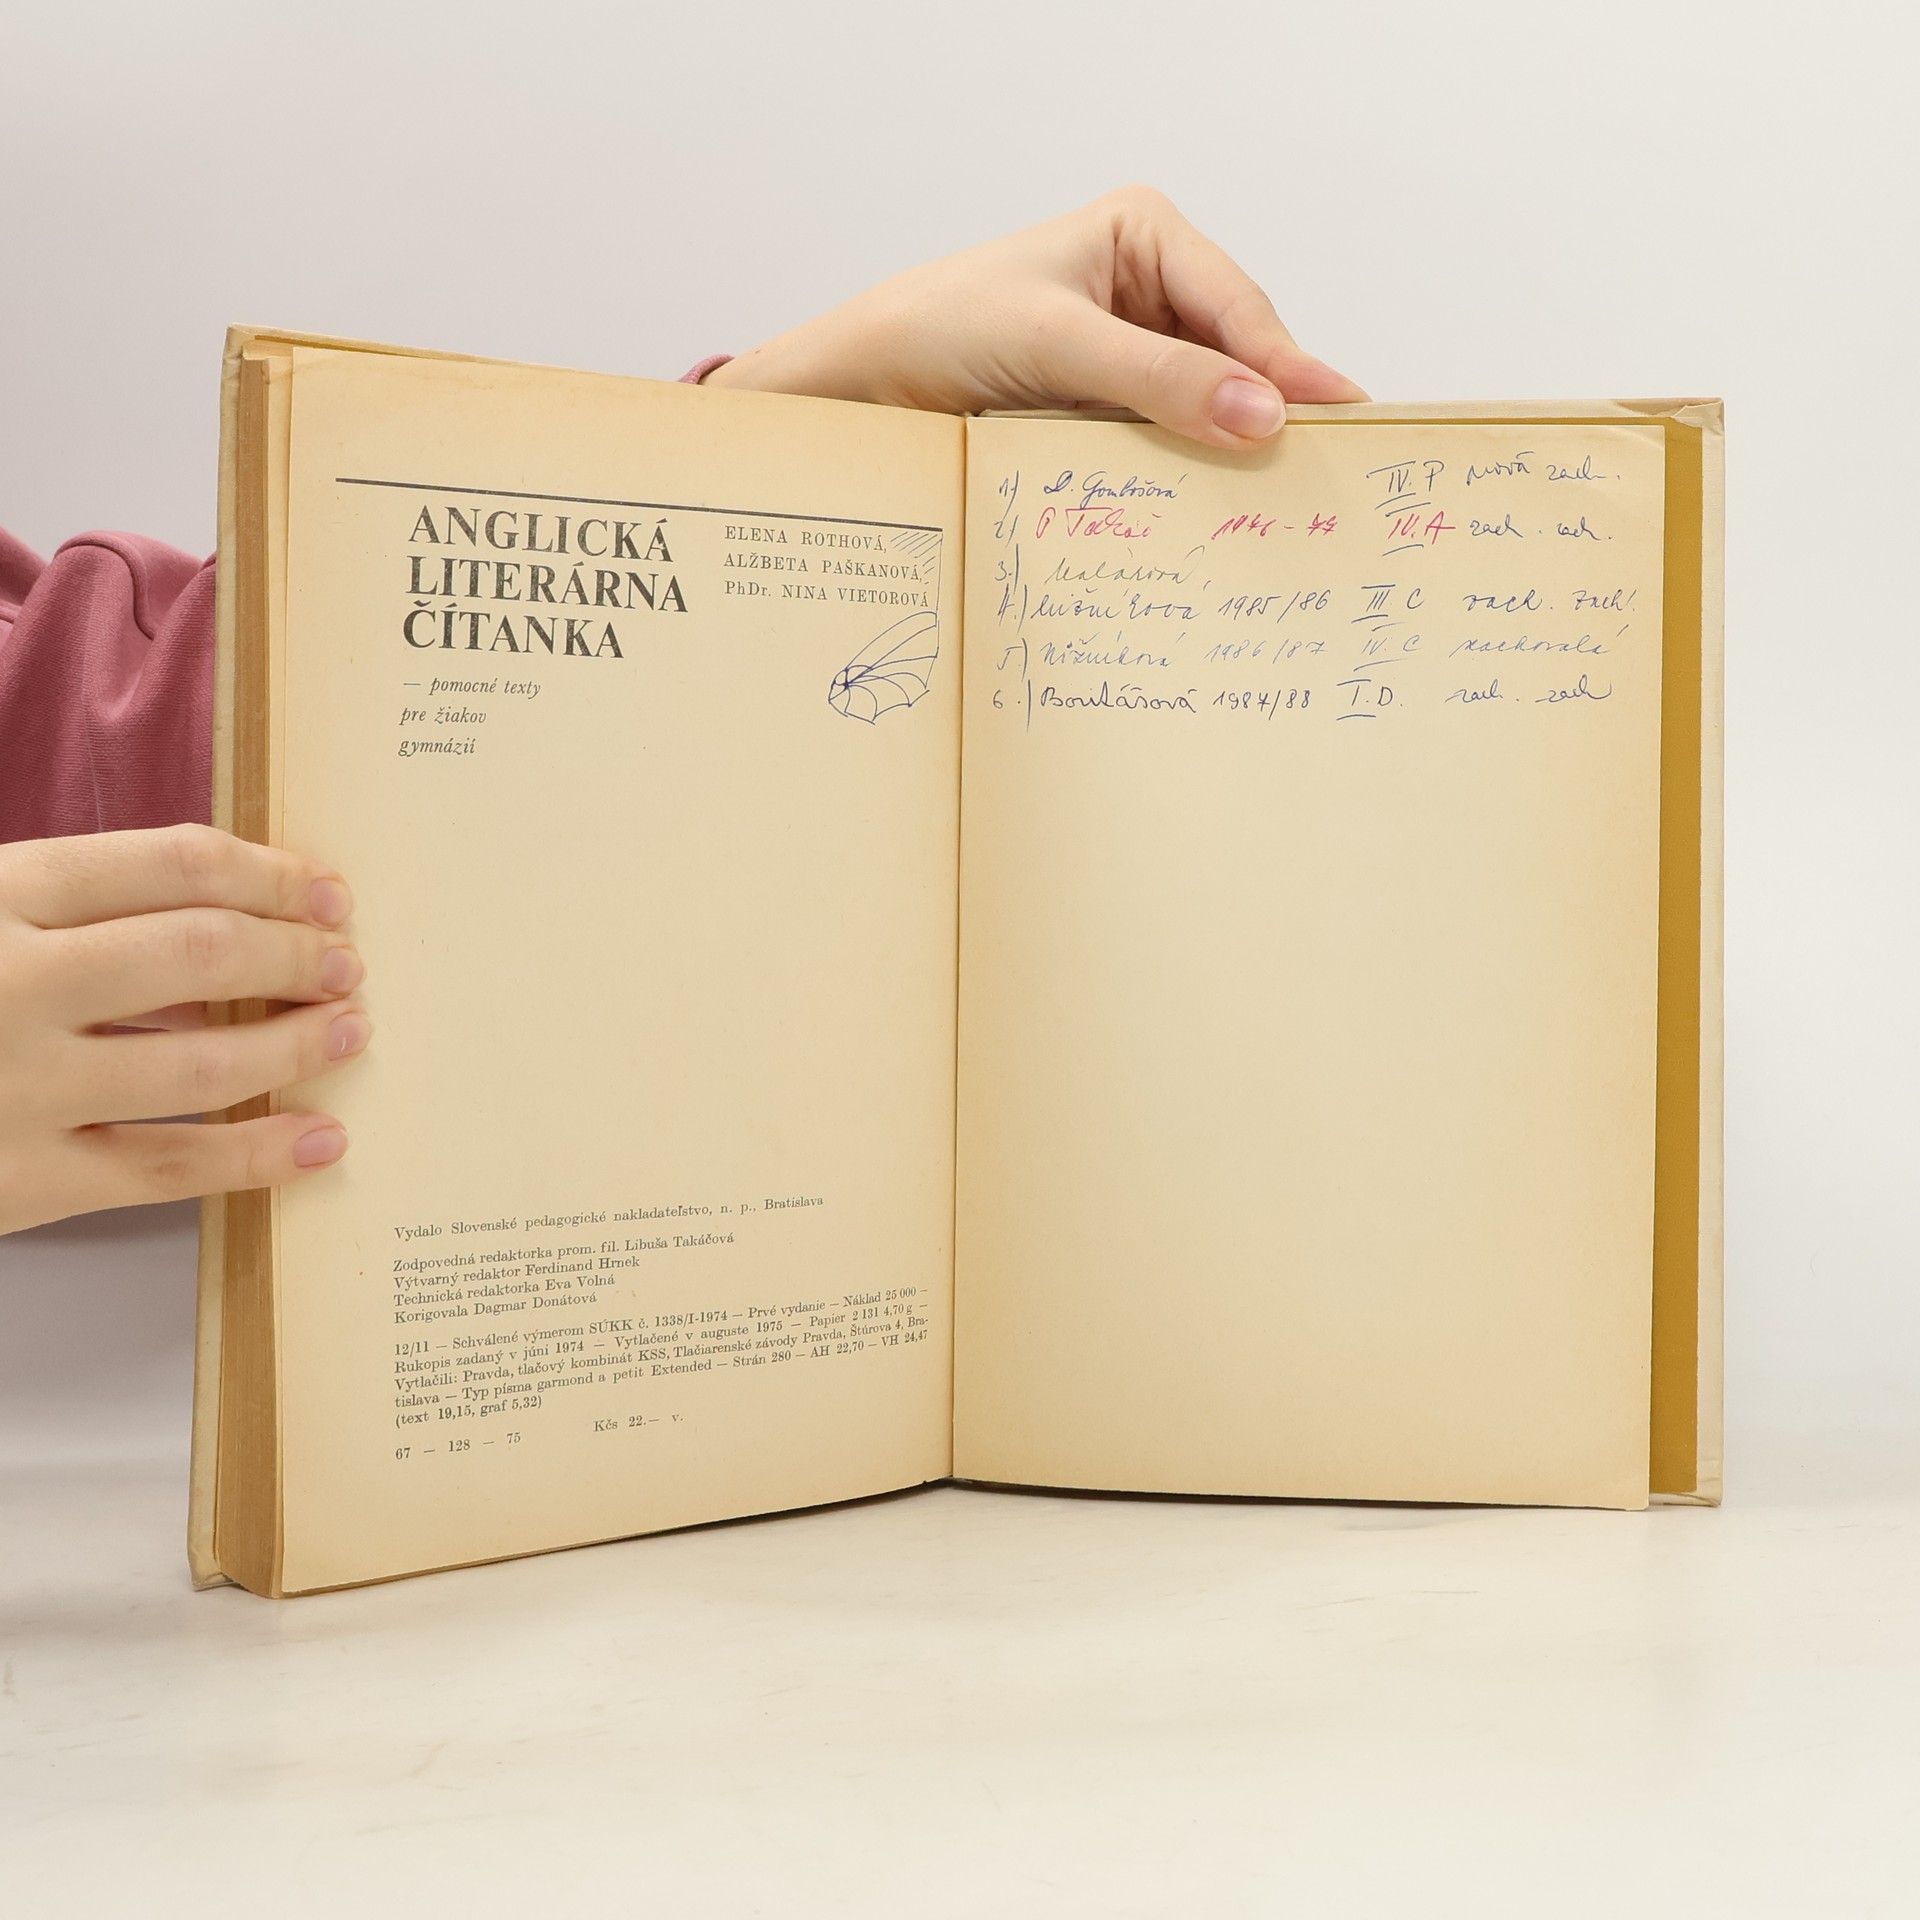 ANGLICKÁ
LITERÁRNA
ČÍTANKA
— pomocné texty
pre žiakov
gymnázií
ELENA ROTHOVÁ,
ALŽBETA PAŠKANOVÁ,
PhDr. NINA VIETOROVÁ
Vydalo Slovenské pedagogické nakladateľstvo, n. p., Bratislava
Zodpovedná redaktorka prom. fil. Libuša Takáčová
Výtvarný redaktor Ferdinand Hrnek
Technická redaktorka Eva Volná
Korigovala Dagmar Donátová
12/11 — Schválené výmerom SÚKK č. 1338/I-1974 — Prvé vydanie — Náklad 25 000 —
Rukopis zadaný v júni 1974 — Vytlačené v auguste 1975 — Papier 2 131 4,70 g —
Vytlačili: Pravda, tlačový kombinát KSS, Tlačiarenské závody Pravda, Štúrova 4, Bra-
tislava — Typ písma garmond a petit Extended — Strán 280 — AH 22,70 — VH 24,47
(text 19,15, graf 5,32)
67 — 128 — 75 Kčs 22.— v.
1.) D. Gombošová IV. P nová zach.
2.) 1976 - 77 IV. A zach.
3.)
4.) 1985/86 III. C zach. zach!
5.) Nižníková 1986/87 IV. C zachovalá
6.) 1987/88 I. D. zach. zach